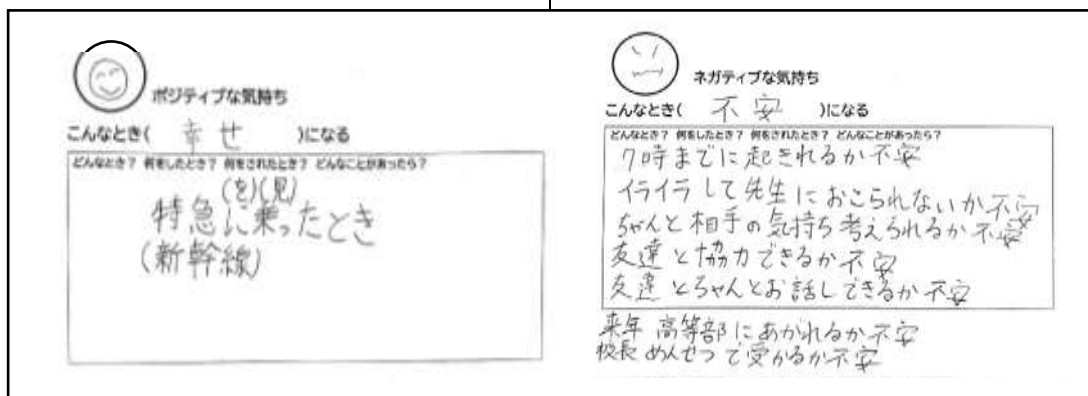 ポジティブな気持ち
こんなとき( 幸せ )になる
どんなとき? 何をしたとき? 何をされたとき? どんなことがあったら?
(を)(見)
特急に乗ったとき
(新幹線)
ネガティブな気持ち
こんなとき( 不安 )になる
どんなとき? 何をしたとき? 何をされたとき? どんなことがあったら?
7時までに起きれるか不安
イライラして先生におこられないか不安
ちゃんと相手の気持ち考えられるか不安
友達と協力できるか不安
友達とちゃんとお話しできるか不安
来年 高等部にあがれるか不安
校長 めんせつで受かるか不安